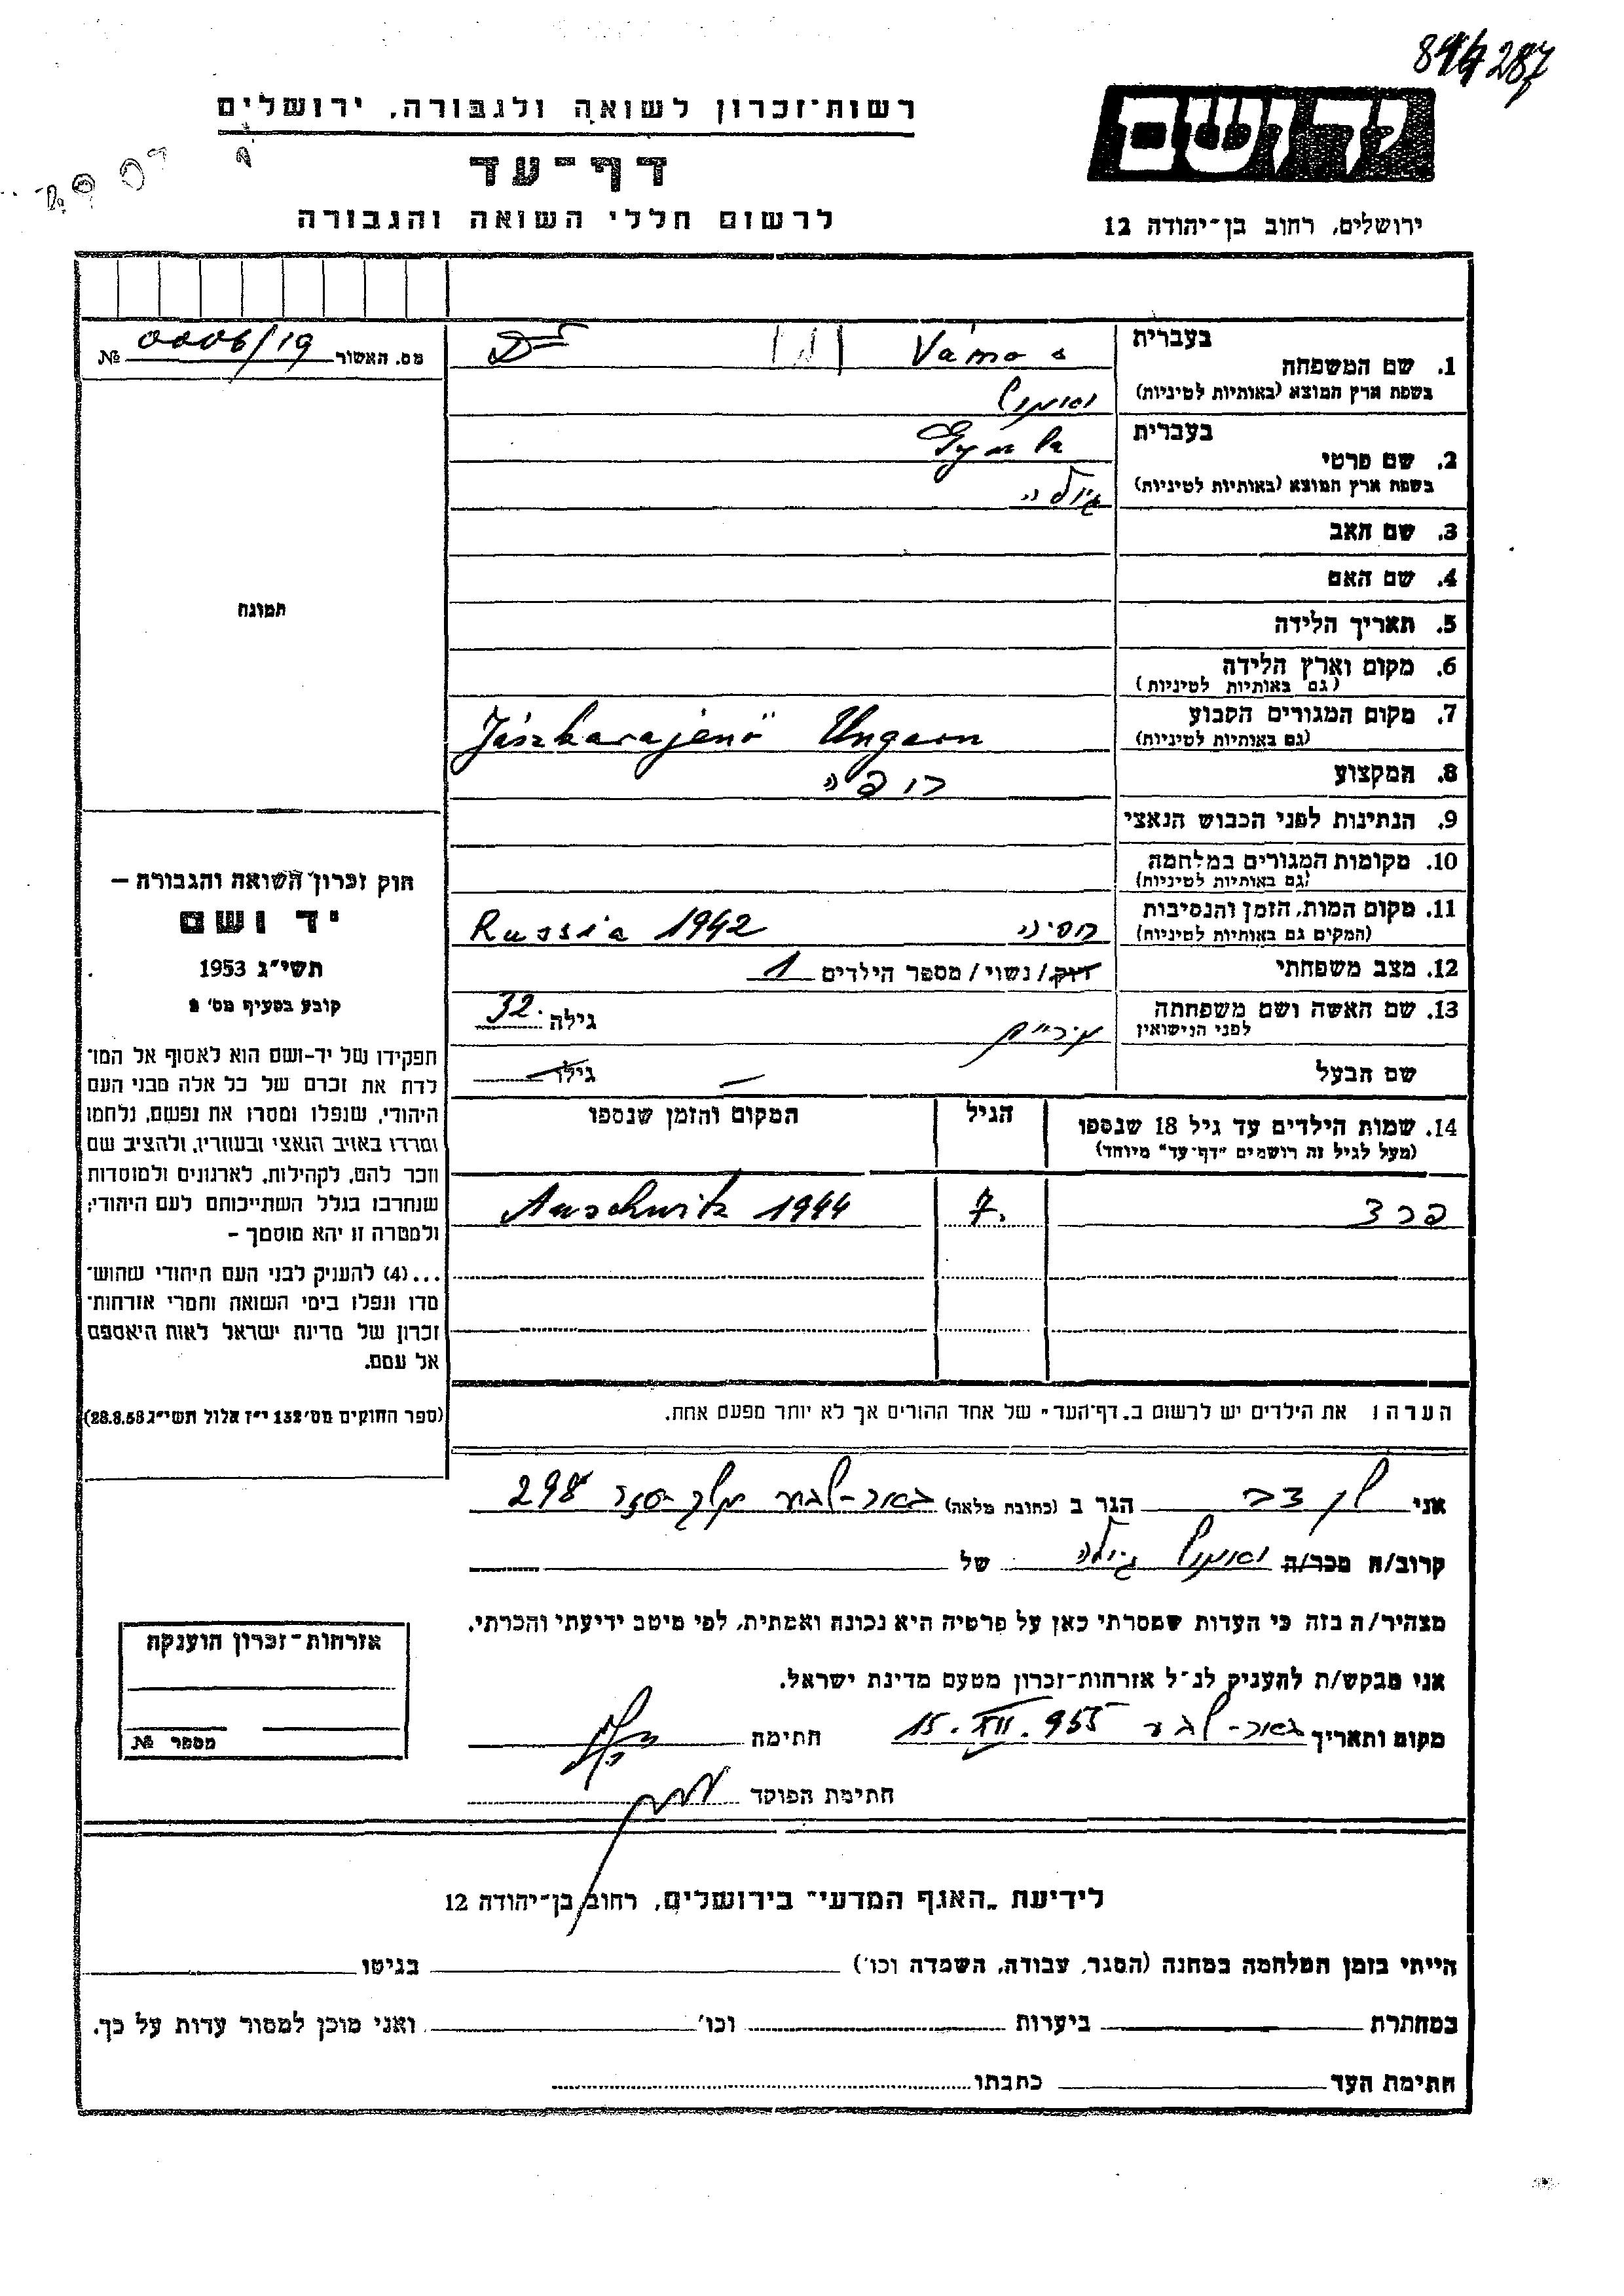 287
רשות־זכרון לשואה ולגבורה, ירושלים
יד ושם
דף־עד
לרשום חללי השואה והגבורה
ירושלים, רחוב בן־יהודה 12
מס. האשור № 0006/19
בעברית Vámos
1. שם המשפחה
בשפת ארץ המוצא (באותיות לטיניות) ואמוש
בעברית Gyula
2. שם פרטי
בשפת ארץ המוצא (באותיות לטיניות) גיולה
3. שם האב
4. שם האם
5. תאריך הלידה
6. מקום וארץ הלידה
(גם באותיות לטיניות)
7. מקום המגורים הקבוע Jászkarajenő Ungarn
(גם באותיות לטיניות)
8. המקצוע רופה
9. הנתינות לפני הכבוש הנאצי
10. מקומות המגורים במלחמה
(גם באותיות לטיניות)
11. מקום המות, הזמן והנסיבות רוסיה Russia 1942
(המקום גם באותיות לטיניות)
12. מצב משפחתי רווק/נשוי/מספר הילדים 1
13. שם האשה ושם משפחתה גילה 32
לפני הנישואין
שם הבעל — גילו —
14. שמות הילדים עד גיל 18 שנספו הגיל המקום והזמן שנספו
(מעל לגיל זה רושמים "דף־עד" מיוחד)
7. Auschwitz 1944
הערה: את הילדים יש לרשום ב„דף־העד" של אחד ההורים אך לא יותר מפעם אחת.
תמונה
חוק זכרון השואה והגבורה –
יד ושם
תשי"ג 1953
קובע בסעיף מס' 2
תפקידו של יד־ושם הוא לאסוף אל המו־
לדת את זכרם של כל אלה מבני העם
היהודי, שנפלו ומסרו את נפשם, נלחמו
ומרדו באויב הנאצי ובעוזריו, ולהציב שם
וזכר להם, לקהילות, לארגונים ולמוסדות
שנחרבו בגלל השתייכותם לעם היהודי;
ולמטרה זו יהא מוסמך –
...(4) להעניק לבני העם היהודי שהוש־
מדו ונפלו בימי השואה והמרי אזרחות־
זכרון של מדינת ישראל לאות היאספם
אל עמם.
(ספר החוקים מס' 132 י"ז אלול תשי"ג 28.8.53)
אני הגר ב (כתובת מלאה) באר-שבע 298
קרוב/ה מכר/ה ואמוש גיולה של
מצהיר/ה בזה כי העדות שמסרתי כאן על פרטיה היא נכונה ואמתית, לפי מיטב ידיעתי והכרתי.
אני מבקש/ת להעניק לנ"ל אזרחות־זכרון מטעם מדינת ישראל.
מקום ותאריך באר-שבע 15.XII.955 חתימה
חתימת הפוקד
אזרחות־זכרון הוענקה
מספר №
לידיעת „האגף המדעי" בירושלים, רחוב בן־יהודה 12
הייתי בזמן המלחמה במחנה (הסגר, עבודה, השמדה וכו') בגיטו
במחתרת ביערות וכו' ואני מוכן למסור עדות על כך.
חתימת העד כתבתו